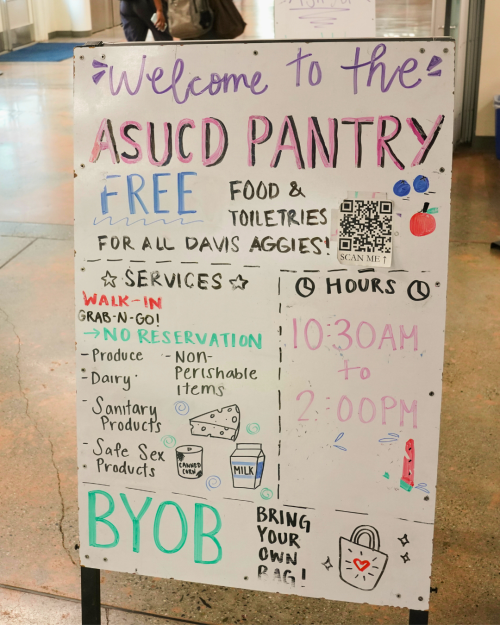 Welcome to the
ASUCD PANTRY
FREE
FOOD &
TOILETRIES
FOR ALL DAVIS AGGIES!
SCAN ME ↑
☆ SERVICES ☆
WALK-IN
GRAB-N-GO!
→NO RESERVATION
- Produce
- Dairy
- Sanitary
Products
- Safe Sex
Products
- Non-
Perishable
items
CANNED
CORN
MILK
HOURS
10:30AM
to
2:00PM
BYOB
BRING
YOUR
OWN
BAG!